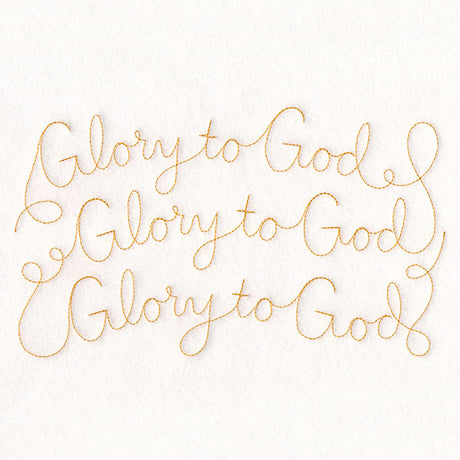 Glory to God
Glory to God
Glory to God